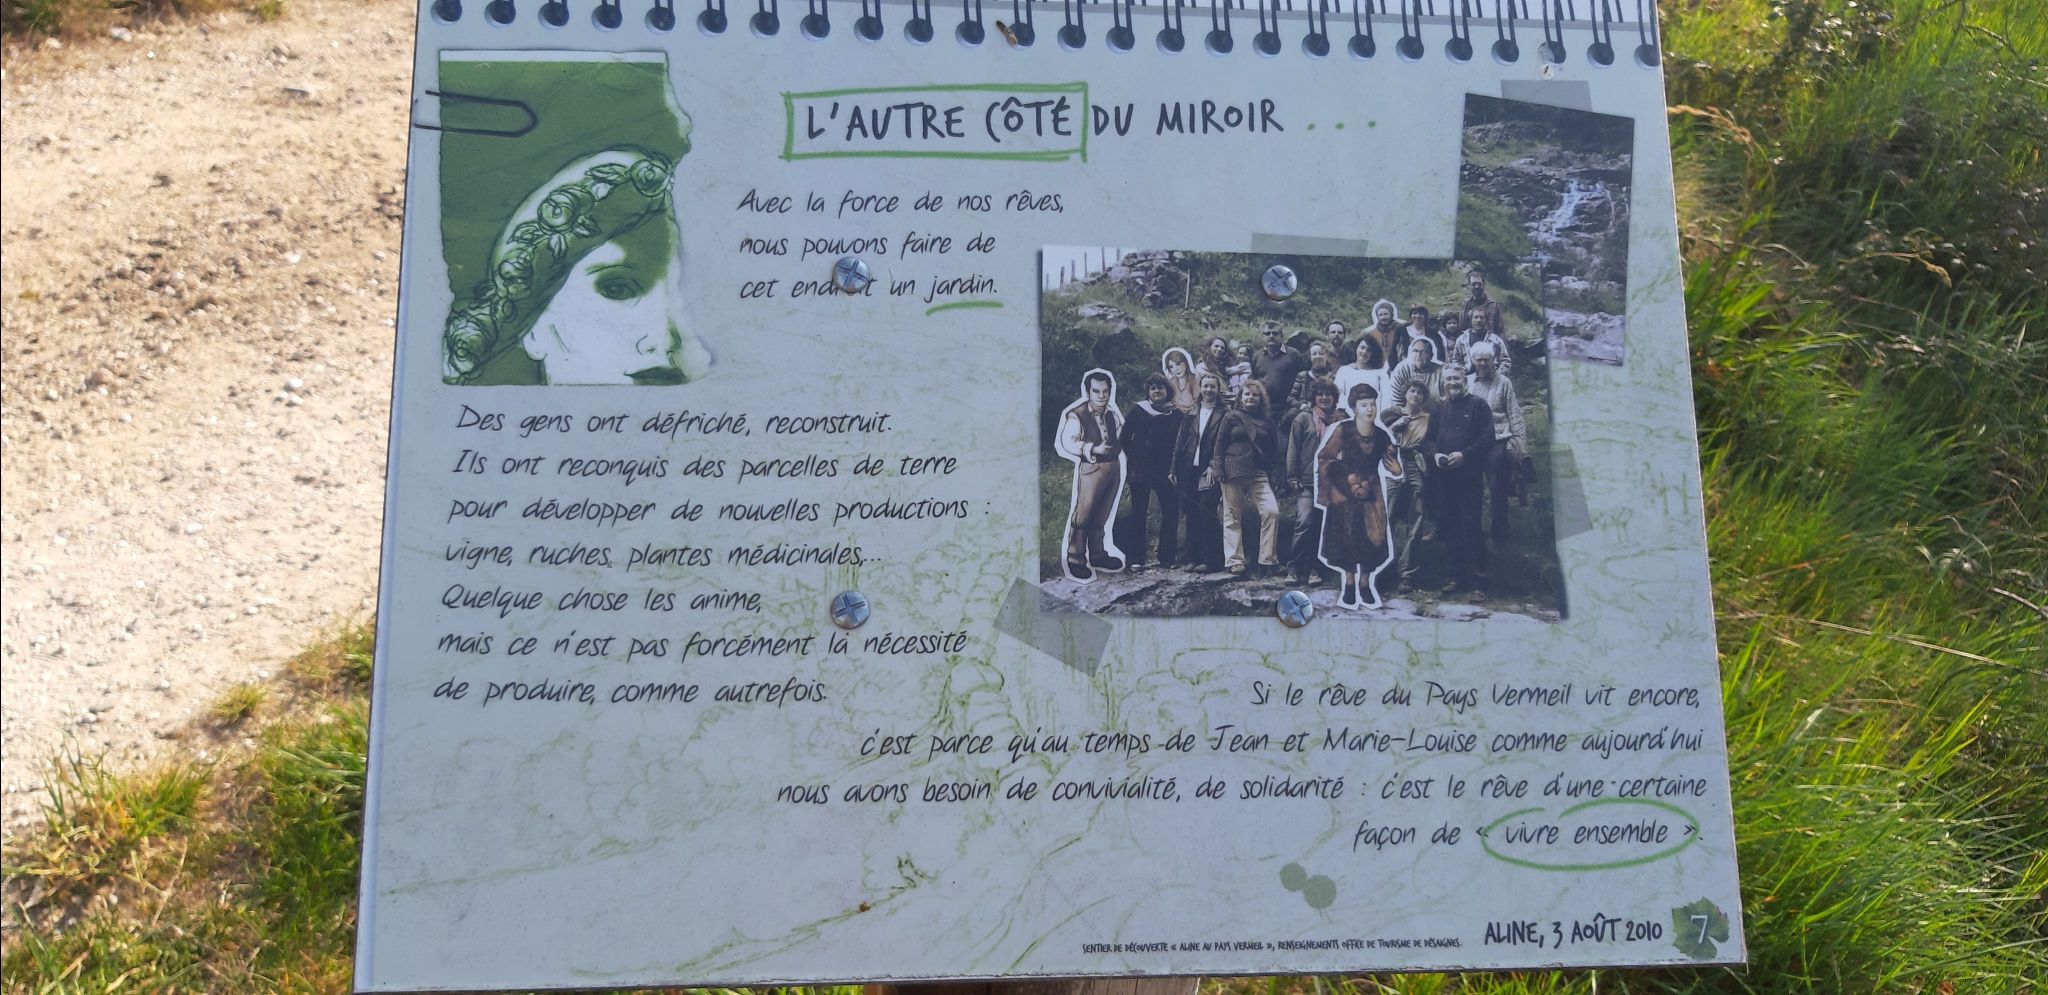 L'AUTRE CÔTÉ DU MIROIR ...
Avec la force de nos rêves,
nous pouvons faire de
cet endroit un jardin.
Des gens ont défriché, reconstruit.
Ils ont reconquis des parcelles de terre
pour développer de nouvelles productions :
vigne, ruches, plantes médicinales,...
Quelque chose les anime,
mais ce n'est pas forcément la nécessité
de produire, comme autrefois.
Si le rêve du Pays Vermeil vit encore,
c'est parce qu'au temps de Jean et Marie-Louise comme aujourd'hui
nous avons besoin de convivialité, de solidarité : c'est le rêve d'une certaine
façon de « vivre ensemble ».
SENTIER DE DÉCOUVERTE « ALINE AU PAYS VERMEIL », RENSEIGNEMENTS OFFICE DE TOURISME DE DÉSAIGNES
ALINE, 3 AOÛT 2010 7